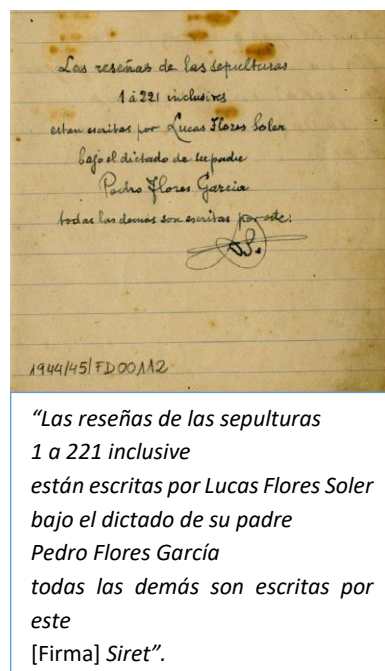 Las reseñas de las sepulturas
1 á 221 inclusives
estan escritas por Lucas Flores Soler
bajo el dictado de su padre
Pedro Flores Garcia
todas las demás son escritas por este:
1944/45/FD00112
“Las reseñas de las sepulturas
1 a 221 inclusive
están escritas por Lucas Flores Soler
bajo el dictado de su padre
Pedro Flores García
todas las demás son escritas por
este
[Firma] Siret”.